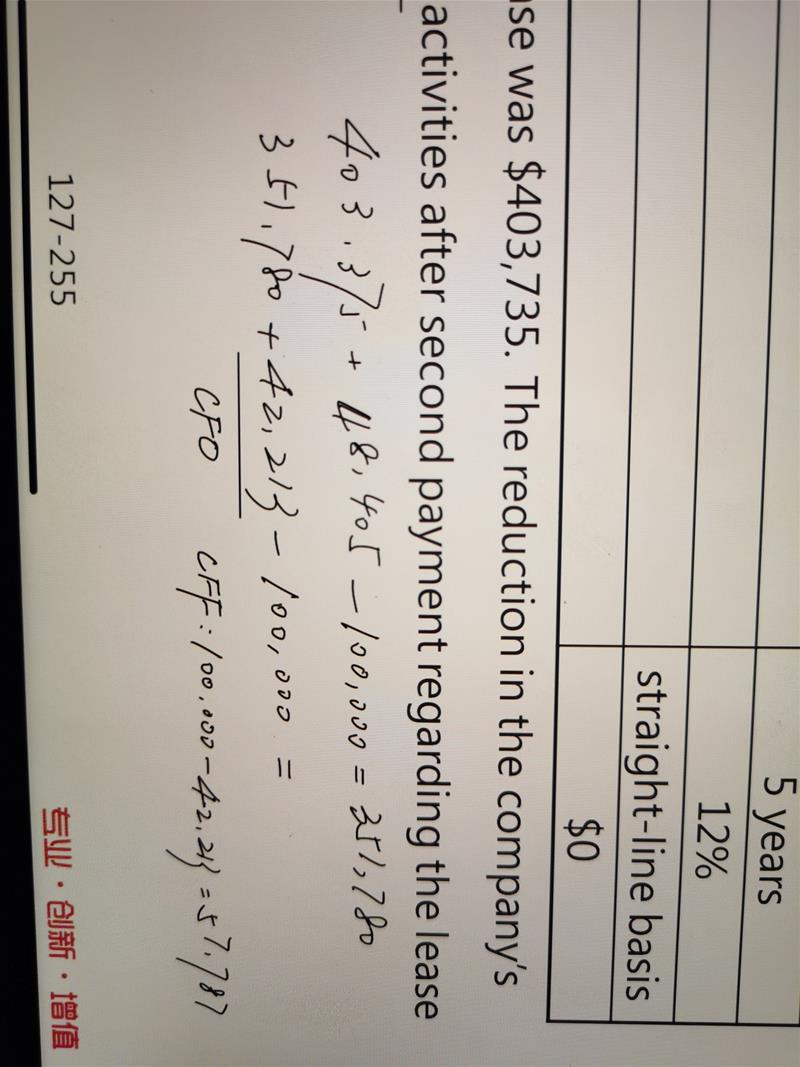 5 years
12%
straight-line basis
$0
se was $403,735. The reduction in the company's
activities after second payment regarding the lease
403.375 + 48,405 - 100,000 = 351,780
351,780 + 42,213 - 100,000 =
CFO CFF: 100,000 - 42,213 = 57,787
127-255
专业·创新·增值